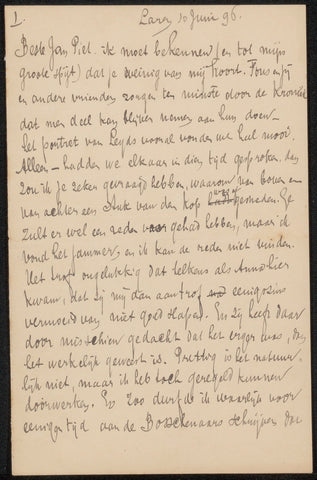 1.
Laren, 10 Juni 96.
Beste Jan Piet. ik moet bekennen (en tot mijn
groote spijt) dat je weinig van mij hoort. Fons en jij
en andere vrienden zorgen ten minste door de Kroniek
dat men deel kan blijven nemen aan hun doen –
het portret van Leyds vooral vonden we heel mooi.
Alleen – hadden we elkaar in dien tijd gesproken, dan
zou ik je zeker gevraagd hebben, waarom van boven en
van achter een stuk van den kop is afgesneden. Je
zult er wel een reden voor gehad hebben, maar ik
vond het jammer, en ik kan de reden niet vinden.
Het trof ongelukkig dat telkens als Anna hier
kwam, dat zij mij dan aantrof eenigszins
vermoeid van niet goed slapen. En zij heeft daar
door misschien gedacht dat het erger was, dan
het werkelijk geweest is. Prettig is het natuur-
lijk niet, maar ik heb toch geregeld kunnen
doorwerken. En zoo durfde ik waarlijk voor
eenigen tijd aan de Bosschenaars schrijven dat